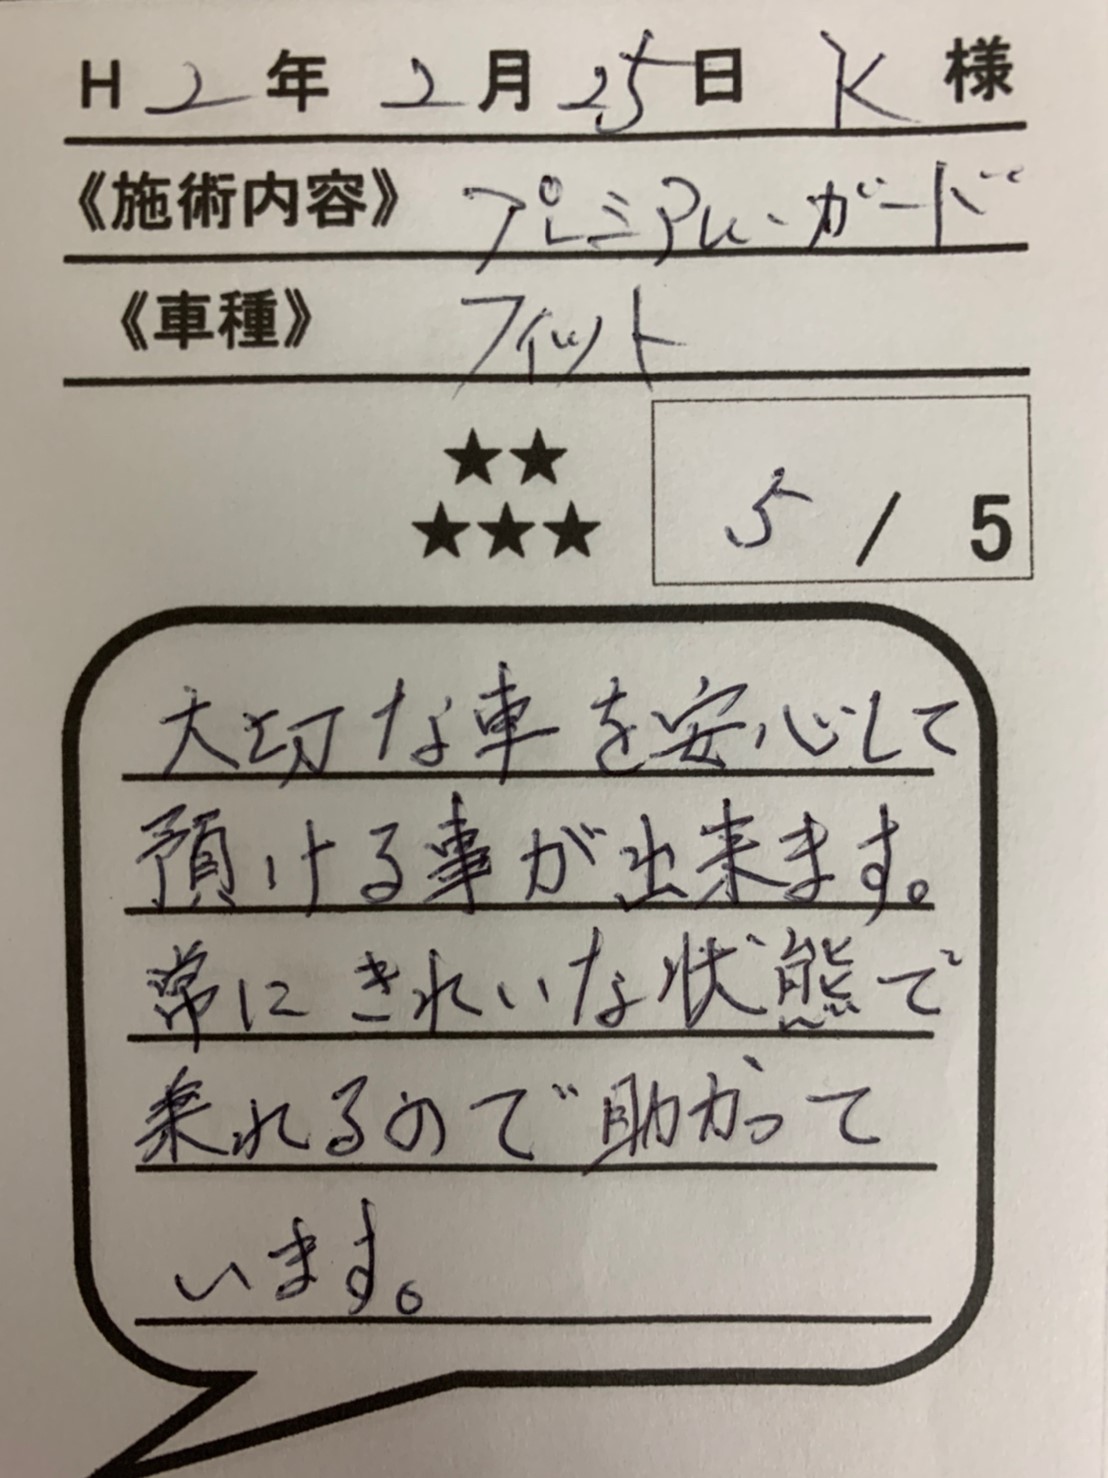 H 2年 2月 25日 K 様
《施術内容》 プレミアム・ガード
《車種》 フィット
★★
★★★
5 / 5
大切な車を安心して
預ける事が出来ます。
常にきれいな状態で
乗れるので助かって
います。